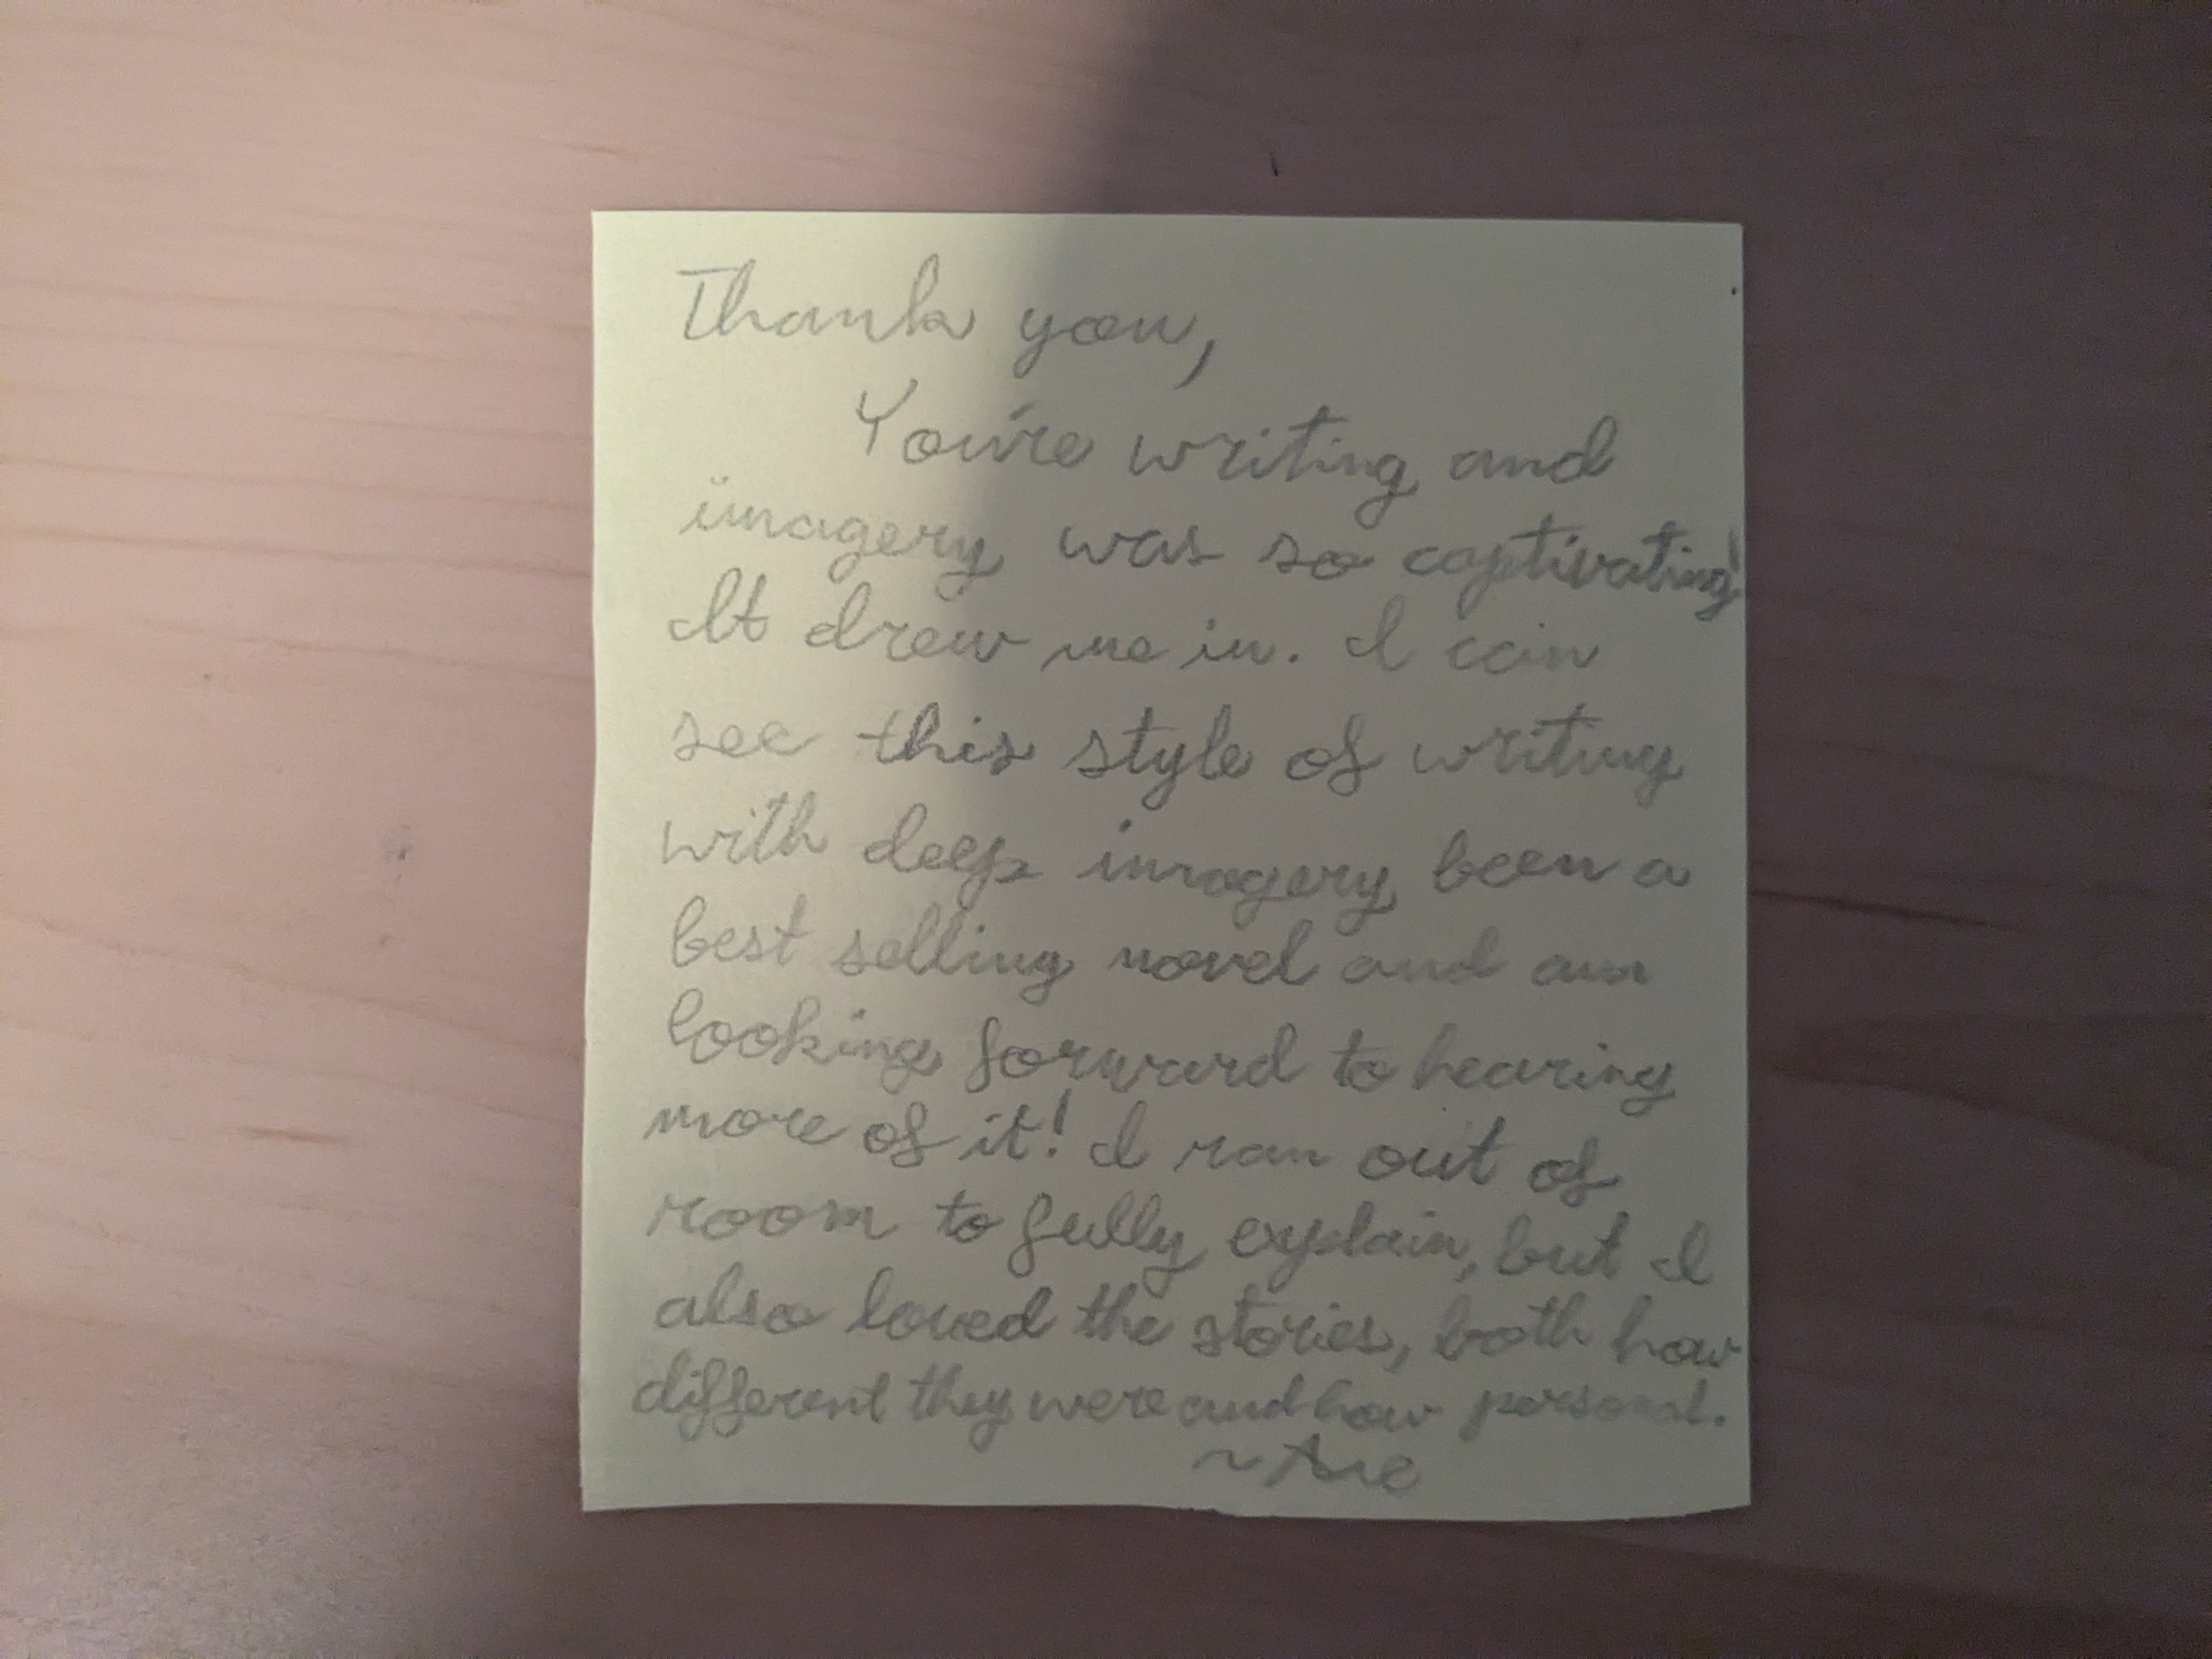 Thank you,
You're writing and
imagery was so captivating!
It drew me in. I can
see this style of writing
with deep imagery been a
best selling novel and am
looking forward to hearing
more of it! I ran out of
room to fully explain, but I
also loved the stories, both how
different they were and how personal.
~